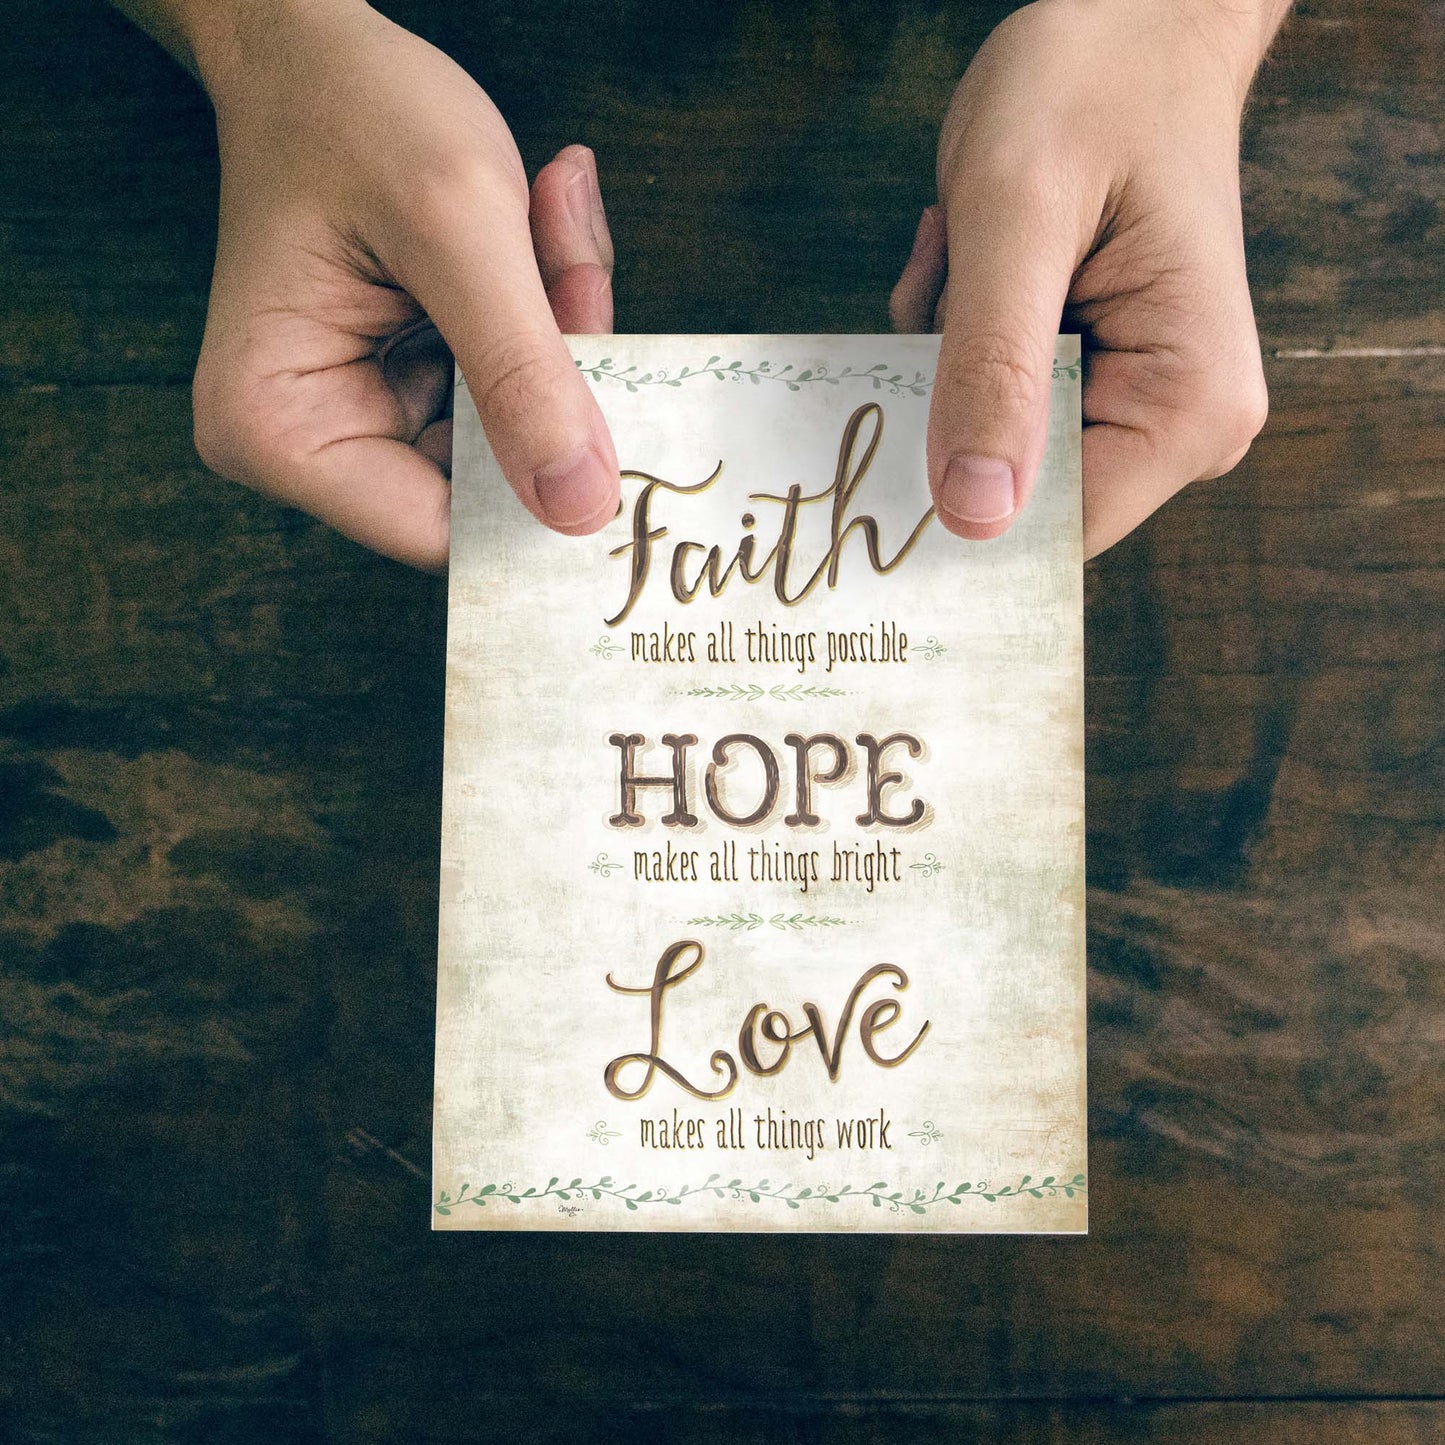 Faith
makes all things possible
HOPE
makes all things bright
Love
makes all things work